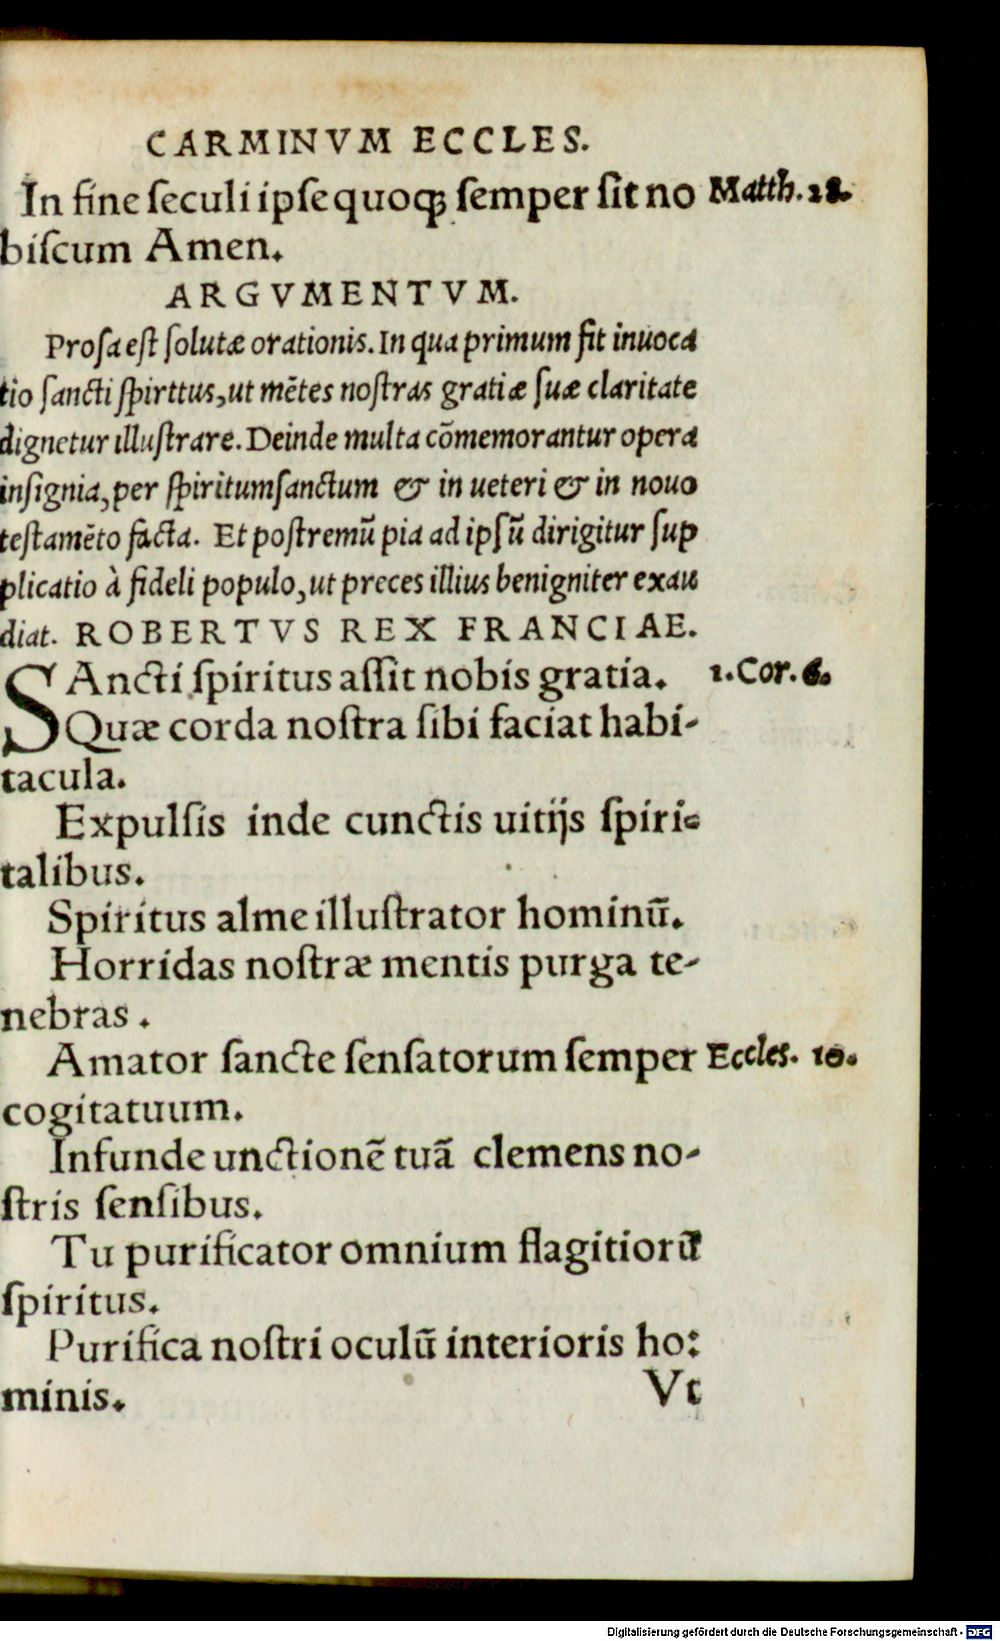 CARMINVM ECCLES.
In fine ſeculi ipſe quoqꝫ ſemper ſit no Matth. 28.
biſcum Amen.
ARGVMENTVM.
Proſa eſt ſolutæ orationis. In qua primum fit inuoca
tio ſancti ſpirttus, ut mētes noſtras gratiæ ſuæ claritate
dignetur illuſtrare. Deinde multa cōmemorantur opera
inſignia, per ſpiritumſanctum & in ueteri & in nouo
teſtamēto facta. Et poſtremū pia ad ipſū dirigitur ſup
plicatio à fideli populo, ut preces illius benigniter exau
diat. ROBERTVS REX FRANCIAE.
SAncti ſpiritus aſſit nobis gratia. 1. Cor. 6.
Quæ corda noſtra ſibi faciat habi-
tacula.
Expulſis inde cunctis uitijs ſpiri-
talibus.
Spiritus alme illuſtrator hominū.
Horridas noſtræ mentis purga te-
nebras.
Amator ſancte ſenſatorum ſemper Eccles. 10.
cogitatuum.
Infunde unctionē tuā clemens no-
ſtris ſenſibus.
Tu purificator omnium flagitiorū
ſpiritus.
Purifica noſtri oculū interioris ho:
minis. Vt
Digitalisierung gefördert durch die Deutsche Forschungsgemeinschaft - DFG